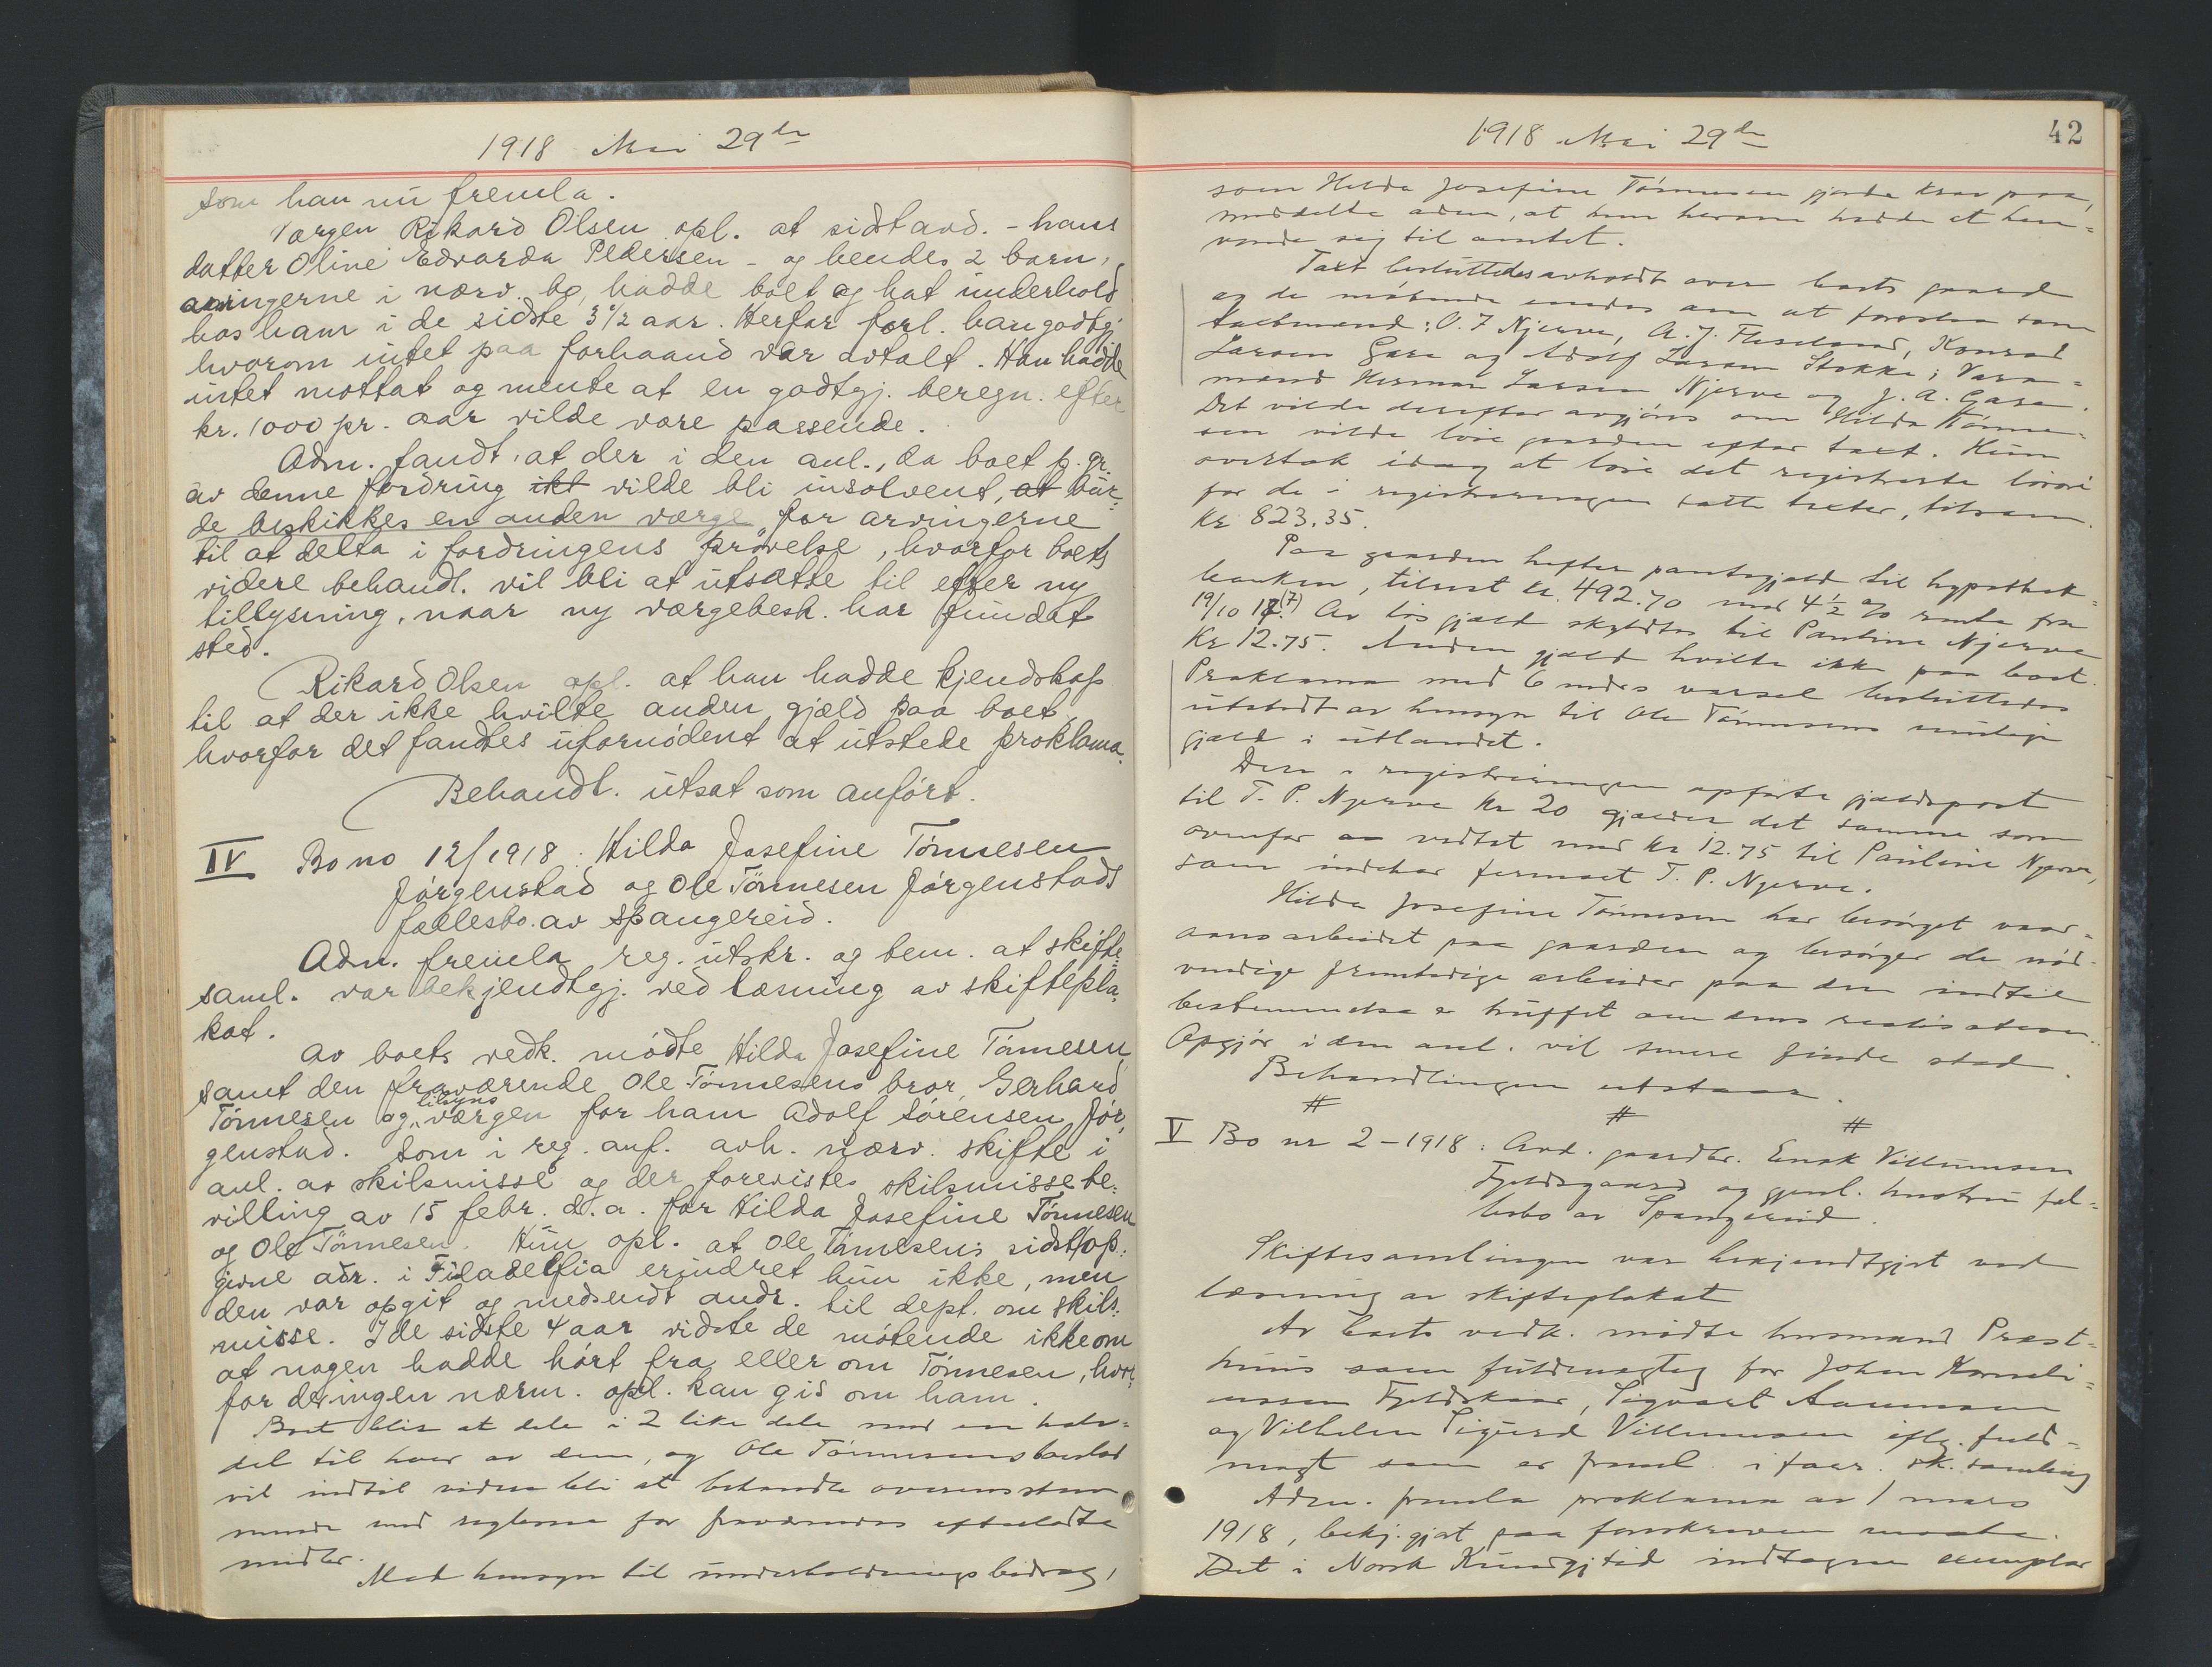 1918 Mai 29de
som han nu fremla.
Værgen Rikard Olsen opl. at sidst avd. - hans
datter Oline Edvarda Pedersen - og hendes 2 barn,
arvingerne i nærv. bo, hadde boet og hat underhold
hos ham i de sidste 3 1/2 aar. Herfor forl. han godtgj.
hvorom intet paa forhaand var avtalt. Han hadde
intet mottat og mente at en godtgj. beregn. efter
kr. 1000 pr. aar vilde være passende.
Adm. fandt, at der i den anl., da boet p. gr.
av denne fordring ikt vilde bli insolvent, at bur-
de beskikkes en anden værge for arvingerne
til at delta i fordringens prøvelse, hvorfor boets
videre behandl. vil bli at utsætte til efter ny
tillysning, naar ny værgebesk. har fundet
sted.
Rikard Olsen opl. at han hadde kjendskap
til at der ikke hvilte anden gjæld paa boet,
hvorfor det fandtes ufornødent at utstede proklama.
Behandl. utsat som anført.
IV Bo no 12/1918: Hilda Josefine Tønnesen
Jørgenstad og Ole Tønnesen Jørgenstads
fællesbo av Spangereid.
Adm. fremla reg. utskr. og bem. at skifte-
saml. var bekjendtgj. ved læsning av skiftepla-
kat.
Av boets vedk. mødte Hilda Josefine Tønnesen,
samt den fraværende Ole Tønnesens bror, Gerhard
Tønnesen og tilsyns værgen for ham Adolf Sørensen Jør-
genstad. Som i reg. anf. avh. nærv. skifte i
anl. av skilsmisse og der forevistes skilsmissebe-
villing av 15 febr. d.a. for Hilda Josefine Tønnesen
og Ole Tønnesen. Hun opl. at Ole Tønnesens sidst op-
givne adr. i Filadelfia erindret hun ikke, men
den var opgit og medsendt andr. til dept. om skils-
misse. I de sidste 4 aar vidste de møtende ikke om
at nogen hadde hørt fra eller om Tønnesen, hvor-
for der ingen nærm. opl. kan gis om ham.
Boet blir at dele i 2 like dele med en halv-
del til hver av dem, og Ole Tønnesens boslod
vil indtil videre bli at behandle overensstem-
mende med reglerne for fraværendes efterladte
midler.
Med hensyn til underholdningsbidrag,
1918 Mai 29de
42
som Hilda Josefine Tønnesen gjorde krav paa,
meddelte adm., at hun herom hadde at hen-
vende sig til amtet.
Taxt besluttedes avholdt over boets gaard
og de møtende enedes om at foreslaa som
taxtmænd: O. F. Njerve, A. J. Fleseland, Konrad
Larsen Gare og Adolf Larsen Stokke; Vara-
mænd Herman Larsen Njerve og J. A. Gare.
Det vilde derefter avgjøres om Hilda Tønne-
sen vilde løse gaarden efter taxt. Hun
overtok idag at løse det registrerte løsøre
for de i registreringen satte taxter, tilsam.
Kr 823.35.
Paa gaarden hefter pantegjæld til hypothek-
banken, tilrest kr. 492.70 med 4 1/2 % rente fra
19/10 17.(7) Av løs gjæld skyldtes til Pauline Njerve
Kr 12.75. Anden gjæld hvilte ikke paa boet.
Proklama med 6 mdrs varsel besluttedes
utstedt av hensyn til Ole Tønnesens mulige
gjæld i utlandet.
Den i registreringen opførte gjældspost
til T. P. Njerve Kr 20 gjælder det samme som
ovenfor er vedtat med Kr 12.75 til Pauline Njerve,
som indehar firmaet T. P. Njerve.
Hilda Josefine Tønnesen har besørget vaar-
aans arbeidet paa gaarden og besørger de nød-
vendige fremtidige arbeider paa den indtil
bestemmelse er truffet om dens realisation.
Opgjør i den anl. vil senere finde sted.
Behandlingen utstaar.
# # #
V Bo nr 2-1918: Avd. gaardbr. Enok Villumsen
Fjeldsgaard og gjenl. hustru fæl-
lesbo av Spangereid.
Skiftesamlingen var bekjendtgjort ved
læsning av skifteplakat
Av boets vedk. mødte husmand Præst-
huus som fuldmægtig for Johan Korneli-
ussen Fjeldskaar, Sigvart Aanensen
og Vilhelm Sigurd Villumsen iflg. fuld-
magt som er freml. i foer. sk. samling
Adm. fremla proklama av 1 mars
1918, bekj. gjort paa foreskreven maate.
Det i Norsk Kundgj tid indtagne exemplar